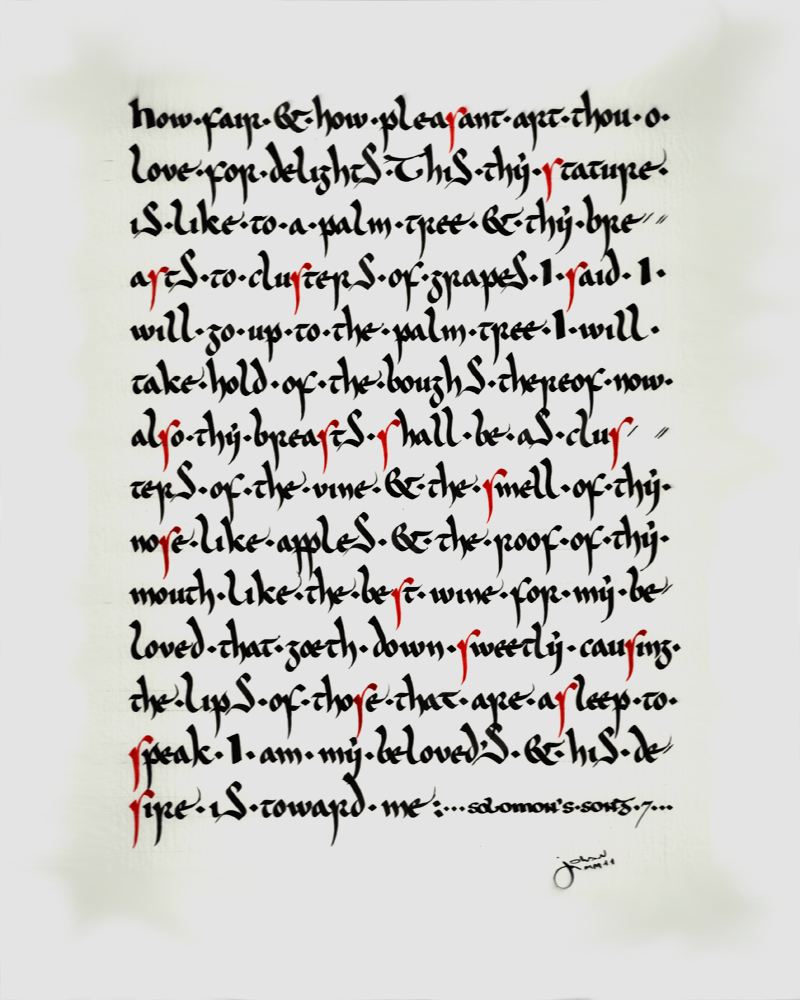 how·fair·&·how·pleasant·art·thou·o·
love·for·delightS·ThiS·thẏ·stature·
iS·like·to·a·palm·tree·&·thẏ·bre〃
astS·to·clusterS·of·grapeS·I·said·I·
will·go·up·to·the·palm·tree·I·will·
take·hold·of·the·boughS·thereof·now·
also·thẏ·breastS·shall·be·aS·clus〃
terS·of·the·vine·&·the·smell·of·thẏ·
nose·like·appleS·&·the·roof·of·thẏ·
mouth·like·the·best·wine·for·mẏ·be-
loved·that·goeth·down·sweetlẏ·causing·
the·lipS·of·those·that·are·asleep·to·
speak·I·am·mẏ·beloved'S·&·hiS·de-
sire·iS·toward·me:···solomon's·song·7···
john
MMII